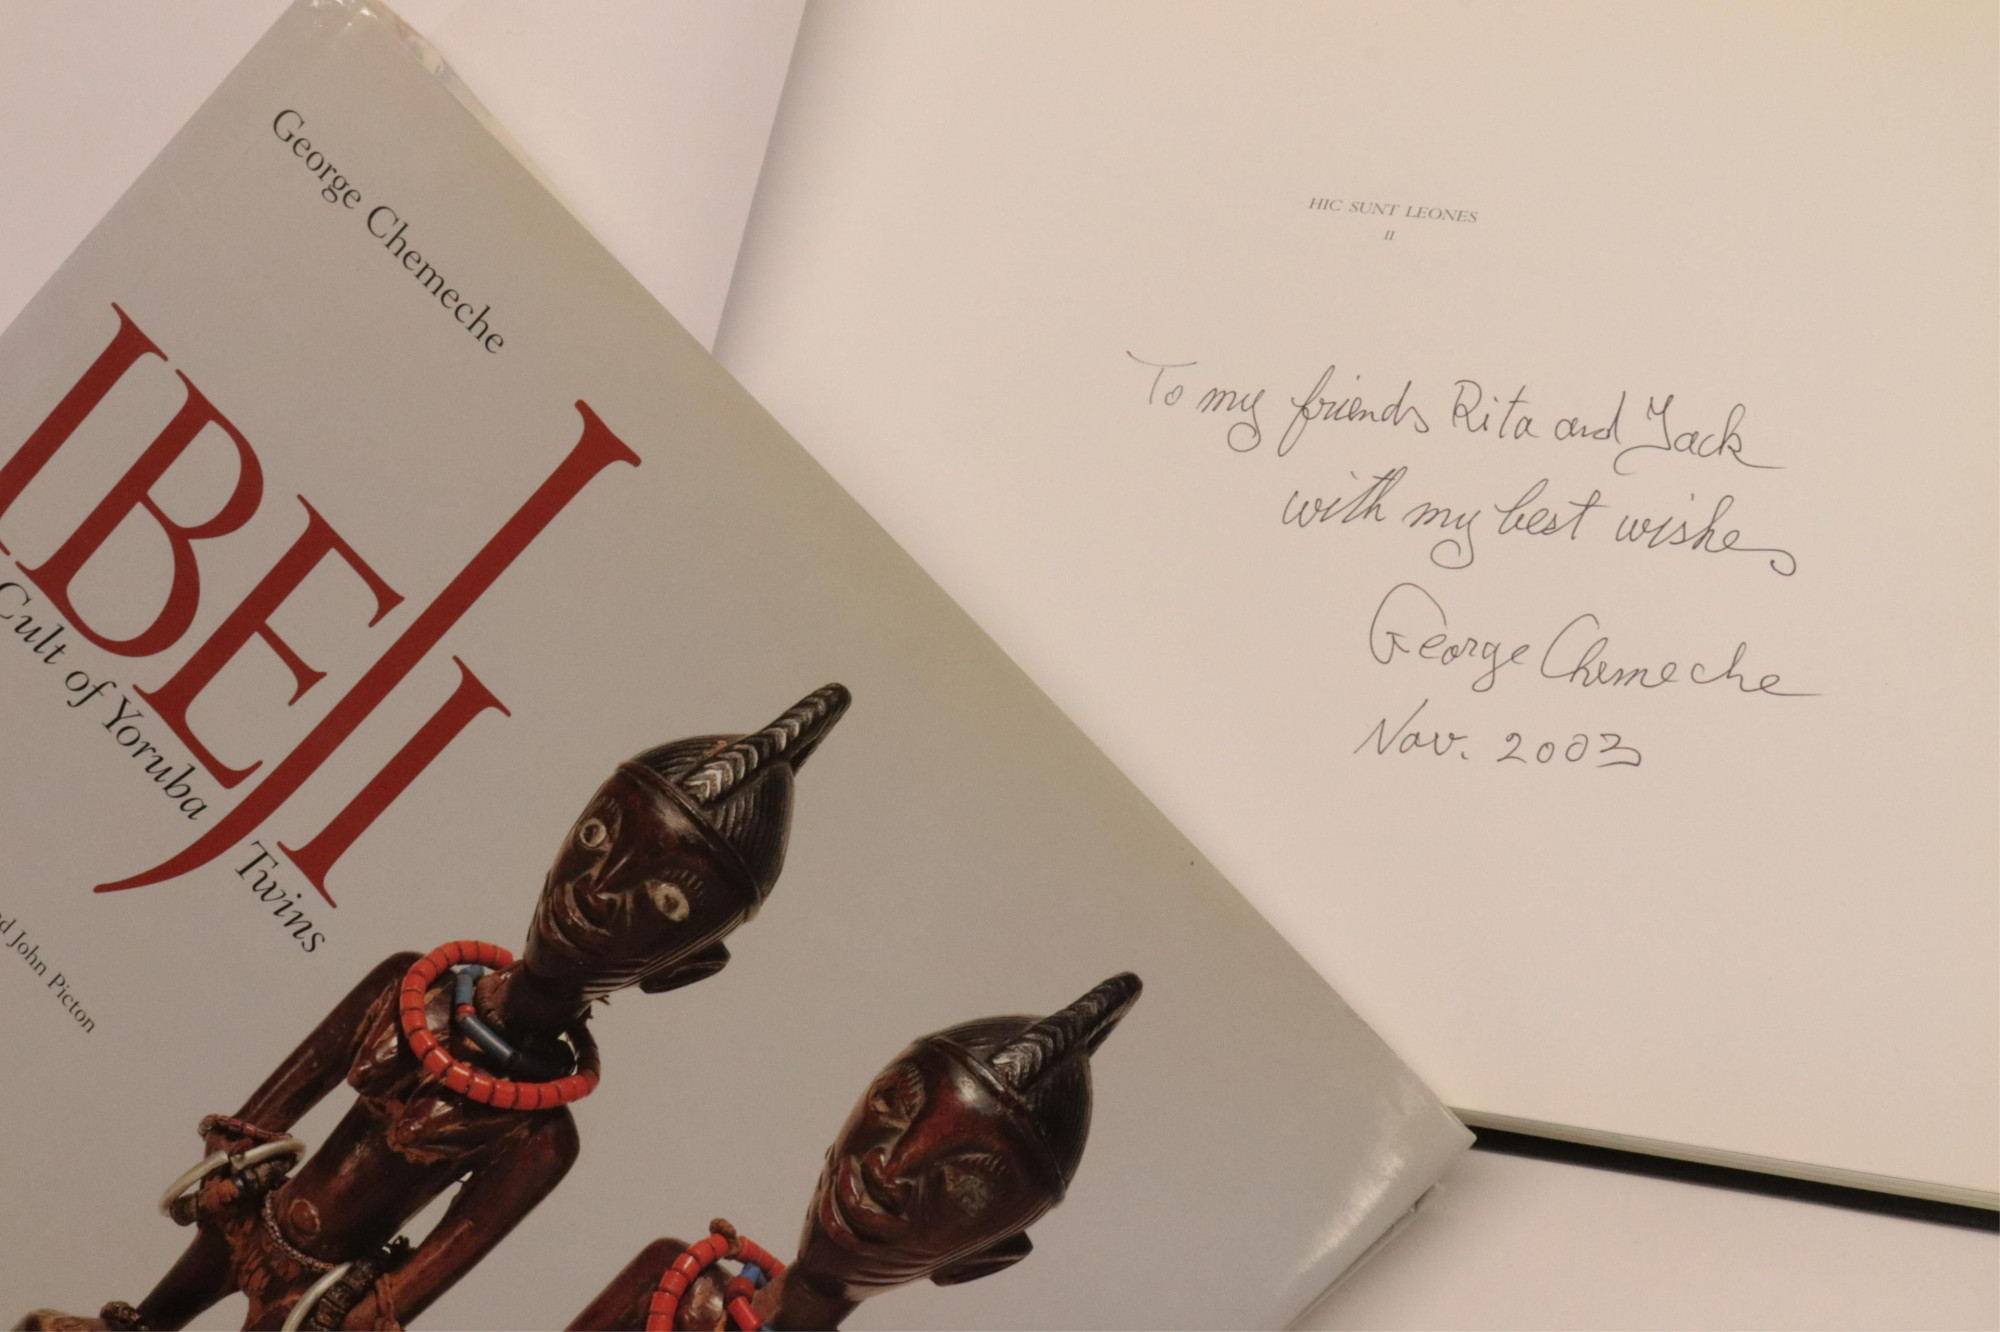 George Chemeche
IBEJI
Cult of Yoruba Twins
John Picton
HIC SUNT LEONES
II
To my friends Rita and Jack
with my best wishes
George Chemeche
Nov. 2003